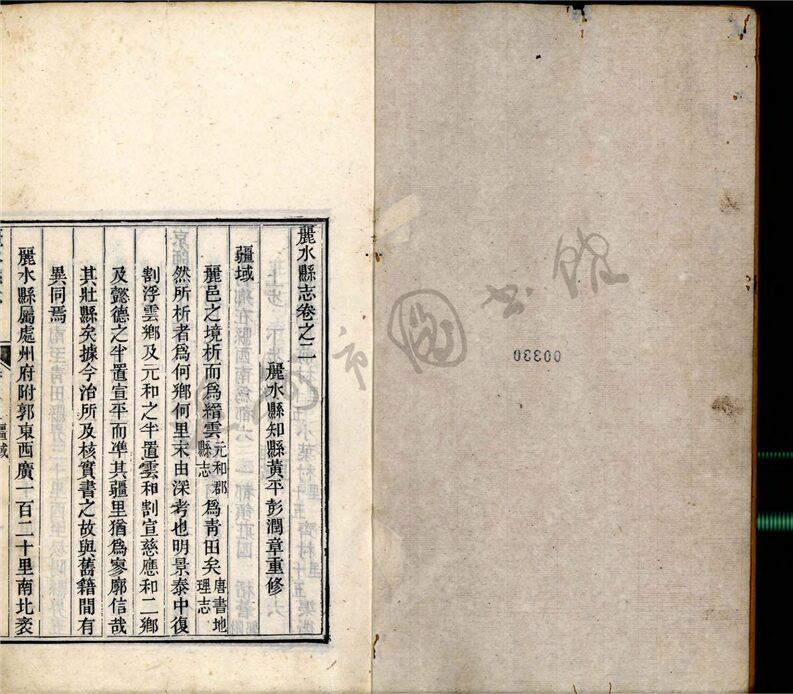 麗水縣志卷之二
麗水縣知縣黃平彭潤章重修
疆域
麗邑之境析而爲縉雲元和郡縣志爲靑田矣唐書地理志
然所析者爲何鄉何里末由深考也明景泰中復
割浮雲鄉及元和之半置雲和割宣慈應和二鄉
及懿德之半置宣平而準其疆里猶爲寥廓信哉
其壯縣矣據今治所及核實書之故與舊籍間有
異同焉
麗水縣屬處州府附郭東西廣一百二十里南北袤
疆域
市圖書館
00330